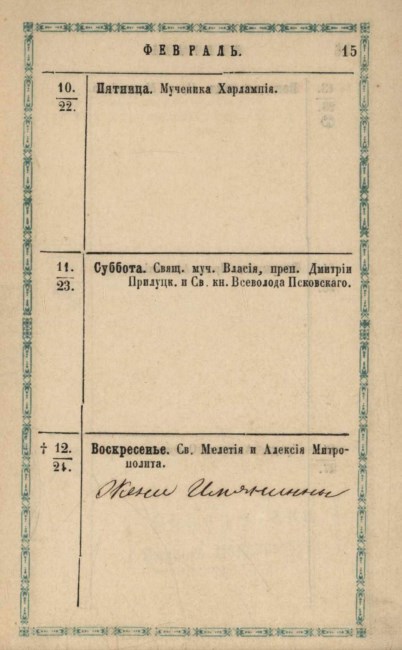 ФЕВРАЛЬ. 15
10. Пятница. Мученика Харлампія.
22.
11. Суббота. Свящ. муч. Власія, преп. Дмитрія
23. Прилуцк. и Св. кн. Всеволода Псковскаго.
† 12. Воскресенье. Св. Мелетія и Алексія Митро-
24. полита.
Жени Имянинны